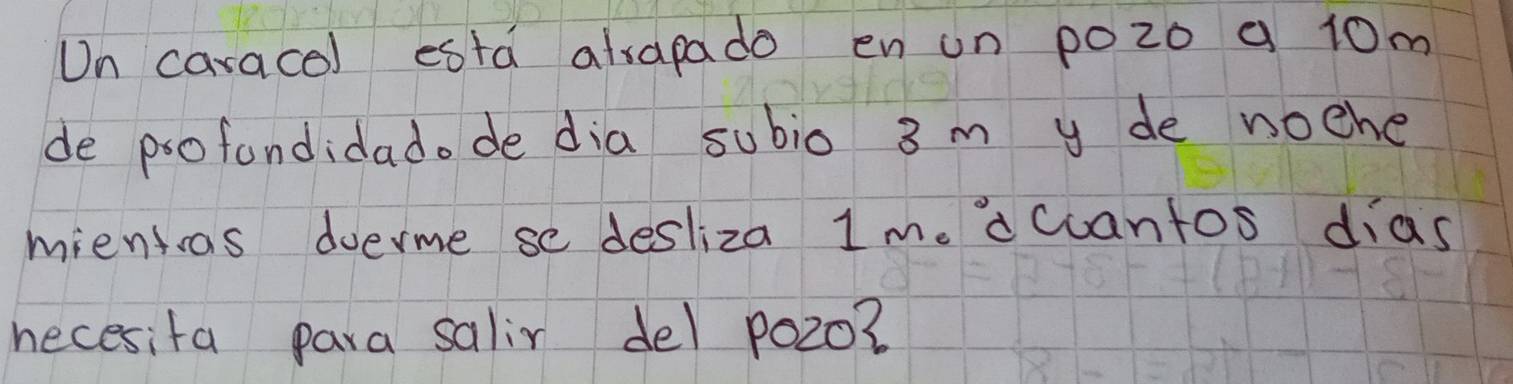 Un caracol está atrapado en un pozo a 10m
de profundidad. de dia subio 3 m y de noche
mientras duerme se desliza 1 m. ¿Cuantos días
necesita para salir del pozo?